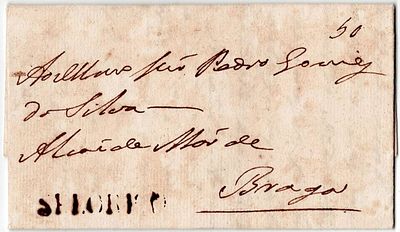 50
Ao Illmo Snr Pedro Gomes
da Silva
Alcaide Mór de
Braga